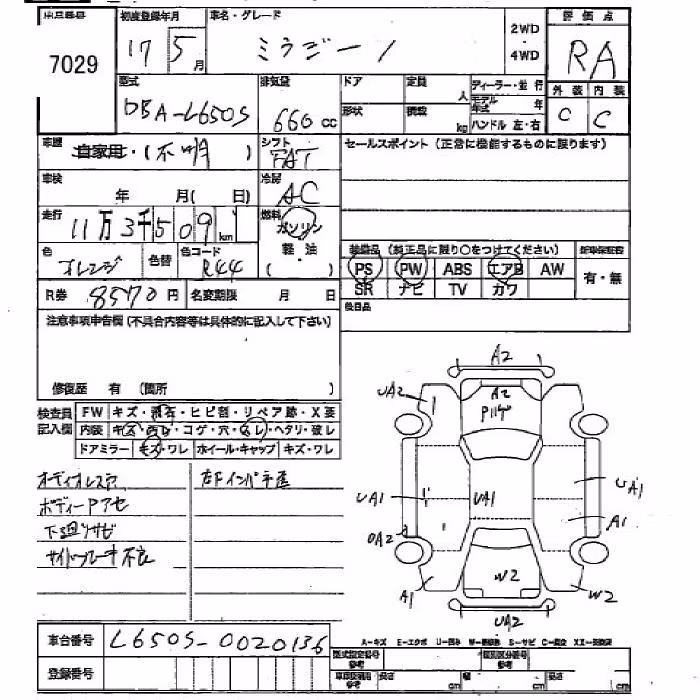 出品番号 初度登録年月 車名・グレード 2WD 評価点
7029 17 5月 ミラジーノ 4WD RA
型式 排気量 ドア 定員 人 ディーラー・並行 外装 内装
DBA-L650S 660cc 形状 積載 kg モデル年式 年 C C
ハンドル 左・右
車歴 自家用・(不明) シフト FAT セールスポイント(正常に機能するものに限ります)
車検 年 月( 日) 冷房 AC
走行 11万3千509km 燃料 ガソリン
軽・油
( )
色 オレンジ 色替 色コード R44
装備品(純正品に限り○をつけてください)
PS PW ABS エアB AW 有・無
SR ナビ TV カワ
R券 8570円 名変期限 月 日 後日品
注意事項申告欄(不具合内容等は具体的に記入して下さい)
修復歴 有(箇所 )
検査員記入欄 FW キズ・飛石・ヒビ割・リペア跡・X要
内装 キズ・汚レ・コゲ・穴・スレ・ヘタリ・破レ
ドアミラー キズ・ワレ ホイール・キャップ キズ・ワレ
オーディオレス 左Fインパ
ボディーPアセ
下廻りサビ
サイドブレーキ不良
A2
UA2 A2
Pハゲ
UA1 UA1 UA1
A1
UA2
A1 W2 W2
UA2
車台番号 L650S-0020136
A-キズ E-エクボ U-凹み S-サビ
登録番号
型式指定番号 参考 類別区分番号 参考
参考 長さ cm 幅 cm 高さ cm